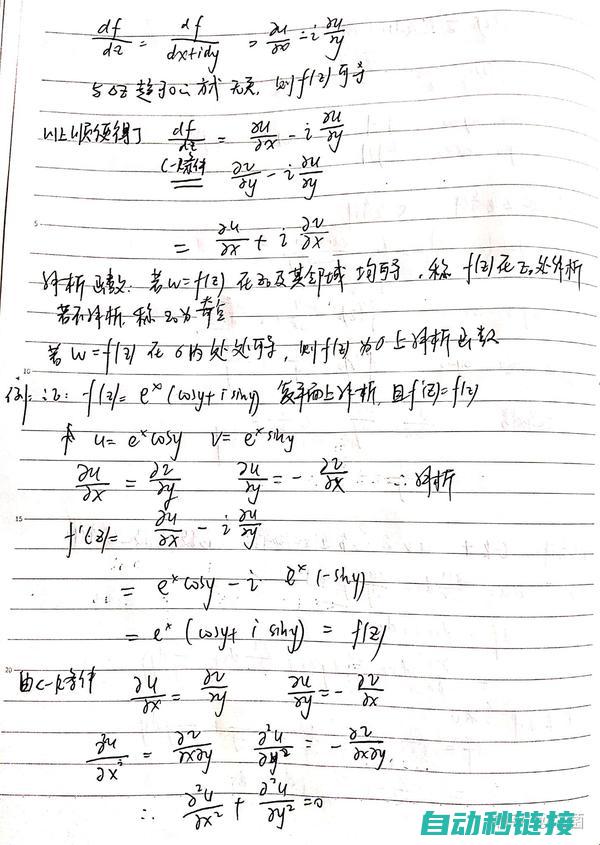 df/dz = df/(dx+idy) = ∂u/∂x - i ∂u/∂y
与Δz趋于0的方式无关, 则f(z)可导
以上顺便得了 df/dz = ∂u/∂x - i ∂u/∂y
C-R条件 ∂v/∂y - i ∂u/∂y
5
= ∂u/∂x + i ∂v/∂x
解析函数: 若w=f(z) 在z₀及其邻域 均可导, 称 f(z)在z₀处解析
若不解析, 称z₀为奇点
若 w=f(z) 在σ内处处可导, 则f(z)为σ上解析函数
10
例: 证: f(z)= eˣ(cosy+isiny) 复平面上解析, 且f'(z)=f(z)
u= eˣcosy v= eˣsiny
∂u/∂x = ∂v/∂y ∂u/∂y = - ∂v/∂x ∴解析
15
f'(z)= ∂u/∂x - i ∂u/∂y
= eˣcosy - i eˣ(-siny)
= eˣ(cosy+ i siny) = f(z)
20
由C-R条件 ∂u/∂x = ∂v/∂y ∂u/∂y = - ∂v/∂x
∂²u/∂x² = ∂²v/∂x∂y ∂²u/∂y² = - ∂²v/∂x∂y
∴ ∂²u/∂x² + ∂²u/∂y² =0
自动秒链接